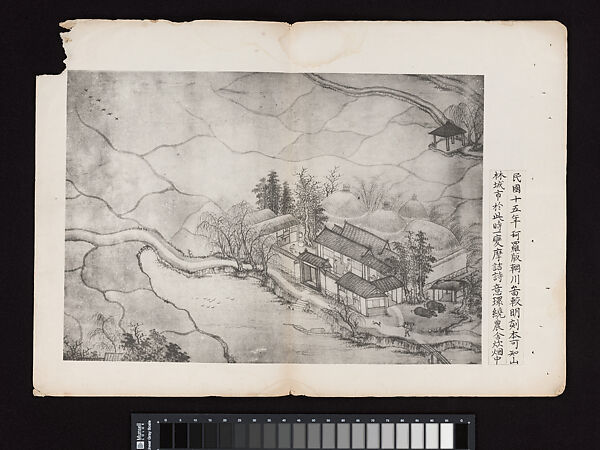 民國十五年珂羅版輞川畫較明刻本可知山
林城市於此時一變摩詰詩意環繞農舍炊烟中